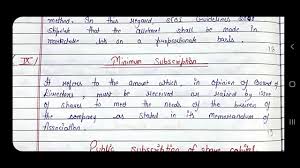 method. In this regard, SEBI Guidelines
stipulate that the allotment shall be made in
marketable lots on a proportionate basis.
IX Minimum Subscription
It refers to the amount which in opinion of Board of
Directors, must be received as raised by issue
of shares to meet the needs of the business of
the company as stated in its Memorandum of
Association.
Public subscription of share capital